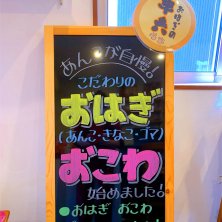 おはぎの
あんこが自慢!
こだわりの
おはぎ
(あんこ・きなこ・ゴマ)
おこわ
始めました!
●おはぎ おこわ